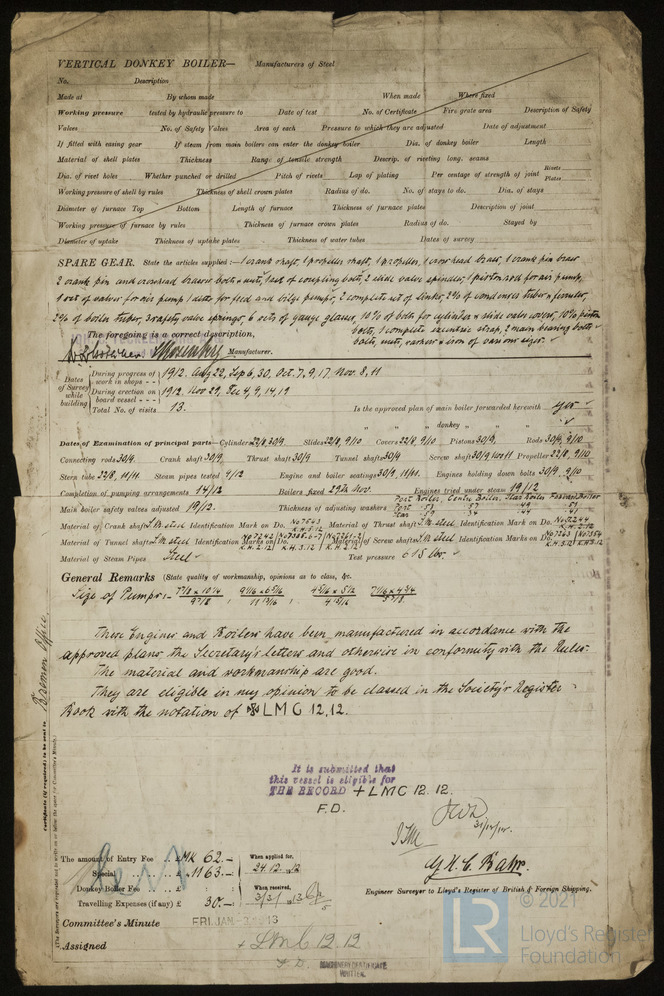 VERTICAL DONKEY BOILER— Manufacturers of Steel
No. Description
Made at By whom made When made Where fixed
Working pressure tested by hydraulic pressure to Date of test No. of Certificate Fire grate area Description of Safety
Valves No. of Safety Valves Area of each Pressure to which they are adjusted Date of adjustment
If fitted with easing gear If steam from main boilers can enter the donkey boiler Dia. of donkey boiler Length
Material of shell plates Thickness Range of tensile strength Descrip. of riveting long. seams
Dia. of rivet holes Whether punched or drilled Pitch of rivets Lap of plating Per centage of strength of joint Rivets Plates
Working pressure of shell by rules Thickness of shell crown plates Radius of do. No. of stays to do. Dia. of stays
Diameter of furnace Top Bottom Length of furnace Thickness of furnace plates Description of joint
Working pressure of furnace by rules Thickness of furnace crown plates Radius of do. Stayed by
Diameter of uptake Thickness of uptake plates Thickness of water tubes Dates of survey
SPARE GEAR. State the articles supplied :— 1 crank shaft, 1 propeller shaft, 1 propeller, 1 crosshead brass, 1 crank pin brass
2 crank pin and crosshead brasses bolts & nuts, 1 set of coupling bolts, 2 slide valve spindles, 1 piston rod for air pump,
1 set of valves for air pump 1 ditto for feed and bilge pumps, 2 complete set of links, 2% of condenser tubes & ferrules,
2% of boiler tubes, 3 safety valve springs, 6 sets of gauge glasses, 10% of bolts for cylinder & slide valve covers, 10% piston
bolts, 1 complete excentric strap, 2 main bearing bolts
bolts, nuts, washers & iron of various sizes.
The foregoing is a correct description,
Manufacturer.
Dates of Survey while building
During progress of work in shops - - 1912. Aug 22, Sep 6, 30, Oct. 7, 9, 17, Nov. 8, 11
During erection on board vessel - - - 1912. Nov 29, Dec 4, 9, 14, 19
Total No. of visits 13.
Is the approved plan of main boiler forwarded herewith yes
" " " donkey "
Dates of Examination of principal parts—Cylinders 22/8, 30/9. Slides 22/8, 9/10 Covers 22/8, 9/10 Pistons 30/9, Rods 30/9, 9/10
Connecting rods 30/9. Crank shaft 30/9, Thrust shaft 30/9 Tunnel shafts 30/9 Screw shaft 30/9 Propeller 22/8, 9/10
Stern tube 22/8, 11/11. Steam pipes tested 4/12 Engine and boiler seatings 30/9, 11/11. Engines holding down bolts 30/9. 9/10
Completion of pumping arrangements 14/12 Boilers fixed 29th Nov. Engines tried under steam 19/12
Main boiler safety valves adjusted 19/12. Thickness of adjusting washers
Material of Crank shaft S.M. steel Identification Mark on Do. Material of Thrust shaft S.M. steel Identification Mark on Do.
Material of Tunnel shafts S.M. steel Identification Marks on Do. Material of Screw shafts S.M. steel Identification Marks on Do.
Material of Steam Pipes Steel Test pressure 615 lbs.
General Remarks (State quality of workmanship, opinions as to class, &c.
Size of Pumps:-
These Engines and Boilers have been manufactured in accordance with the
approved plans the Secretary's letters and otherwise in conformity with the Rules.
The material and workmanship are good.
They are eligible in my opinion to be classed in the Society's Register
Book with the notation of ✠ LMC 12,12.
It is submitted that
this vessel is eligible for
THE RECORD + LMC 12. 12.
F.D.
31/12/12.
The amount of Entry Fee . . £ MK 62.— When applied for,
Special . . . . £ 1163.— 24.12.12
Donkey Boiler Fee . . . £ : : When received,
Travelling Expenses (if any) £ 30.— 3/3/13
Engineer Surveyor to Lloyd's Register of British & Foreign Shipping.
Committee's Minute
Assigned + LMC 12.12
F.D.
MACHINERY CERTIFICATE
WRITTEN.
Certificate (if required) to be sent to Bremen Office.
(The Surveyors are requested not to write on or below the space for Committee's Minute.)
LR
© 2021
Lloyd's Register
Foundation